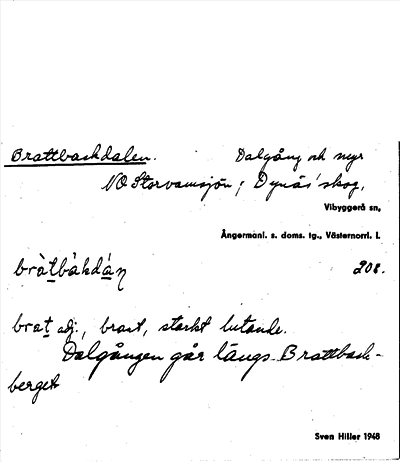 Brattbackdalen. Dalgång och myr
NO Storvamsjön; Dynäs' skog,
Vibyggerå sn,
Ångermanl. s. doms. tg., Västernorrl. l.
bràtbàkdán 208.
brat adj., brant, starkt lutande.
Dalgången går längs Brattback-
berget
Sven Hiller 1948